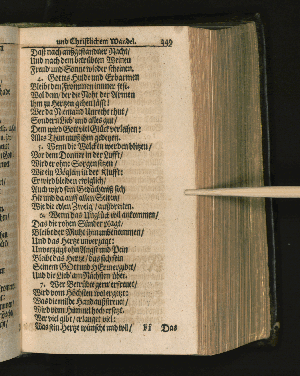 und Christlichem Wandel. 249
Daß nach außgestandner Nacht/
Und nach dem betrübten Weinen
Freud und Sonne wieder scheinen.
4. Gottes Hulde und Erbarmen
Bleibt den Frommen immer fest.
Wol dem/ der die Noht der Armen
Ihm zu Hertzen gehen läst!
Wer da Niemand Unrecht thut/
Sondern Lieb' und alles gut/
Dem wird Gott viel Glück
Alles Thun muß ihm gedeyen.
5. Wenn die Wolcken werden blitzen/
Vor dem Donner in der Lufft/
Wird er ohne Sorgen sitzen/
Wie ein Vöglein in der Klufft:
Er wird bleiben ewiglich/
Auch wird sein Gedächtniß sich
Hie und da auf allen Seiten/
Wie die edlen Zweig/ ausbreiten.
6. Wenn das Unglück wil ankommen/
Das die rohen Sünder plagt/
Bleibet der Muht ihm unbenommen/
Und das Hertze unverzagt:
Unverzagt ohn Angst und Pein
Bleibt das Hertze/ das sich fein
Seinem Gott und HErrn ergibt/
Und die Lieb' am Nächsten übet.
7. Wer Betrübte gern erfreuet/
Wird vom Höchsten wol ergetzt:
Was die milde Hand außstreuet/
Wird vom Himmel hoch ersetzt.
Wer viel gibt/ erlanget viel:
Was sein Hertze wünscht und wil/
Das